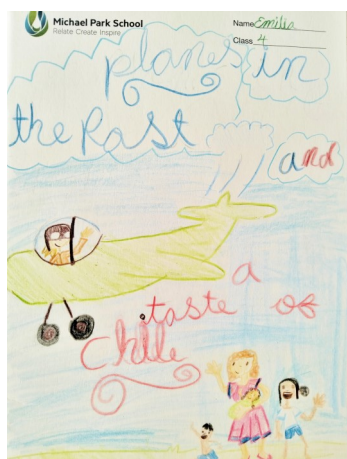 Michael Park School
Relate Create Inspire
Name Emilia
Class 4
planes in
the Past
and
a
taste of
Chile